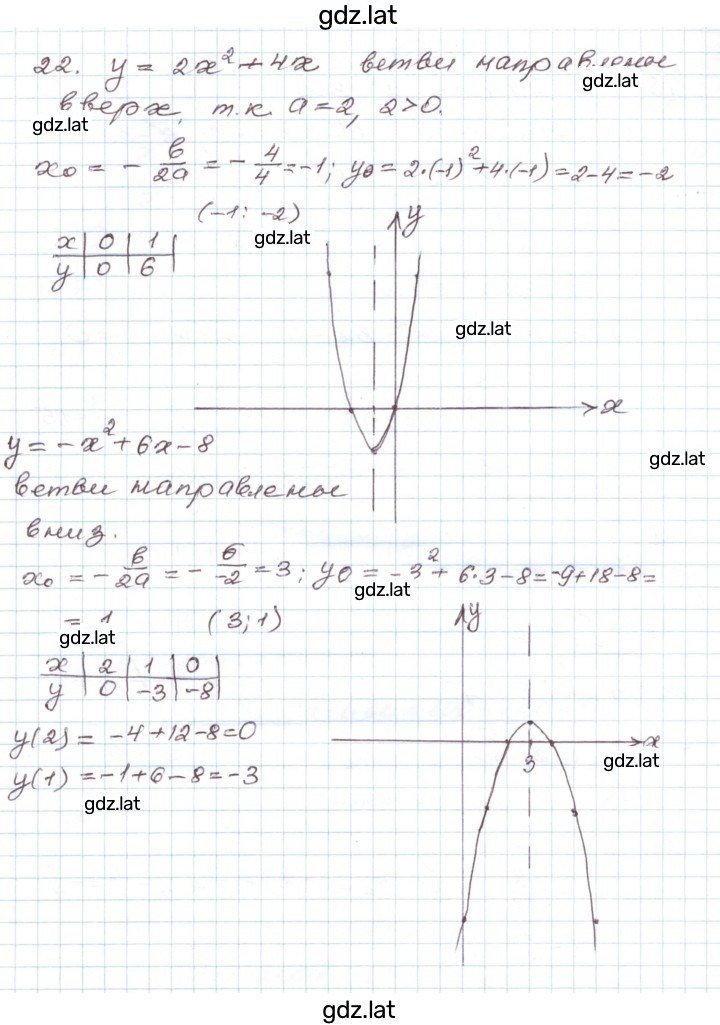 gdz.lat
22. y = 2x² + 4x ветви направлены
gdz.lat
вверх, т.к. a = 2, 2>0.
gdz.lat
x₀ = - в/2a = - 4/4 = -1; y₀ = 2·(-1)² + 4·(-1) = 2-4 = -2
(-1; -2)
y
gdz.lat
x | 0 | 1
y | 0 | 6
gdz.lat
x
y = -x² + 6x - 8
gdz.lat
ветви направлены
вниз.
x₀ = - в/2a = - 6/-2 = 3; y₀ = -3² + 6·3 - 8 = -9+18-8 =
gdz.lat
= 1 (3; 1)
y
gdz.lat
x | 2 | 1 | 0
y | 0 | -3 | -8
y(2) = -4+12-8=0
x
3
gdz.lat
y(1) = -1+6-8 = -3
gdz.lat
gdz.lat